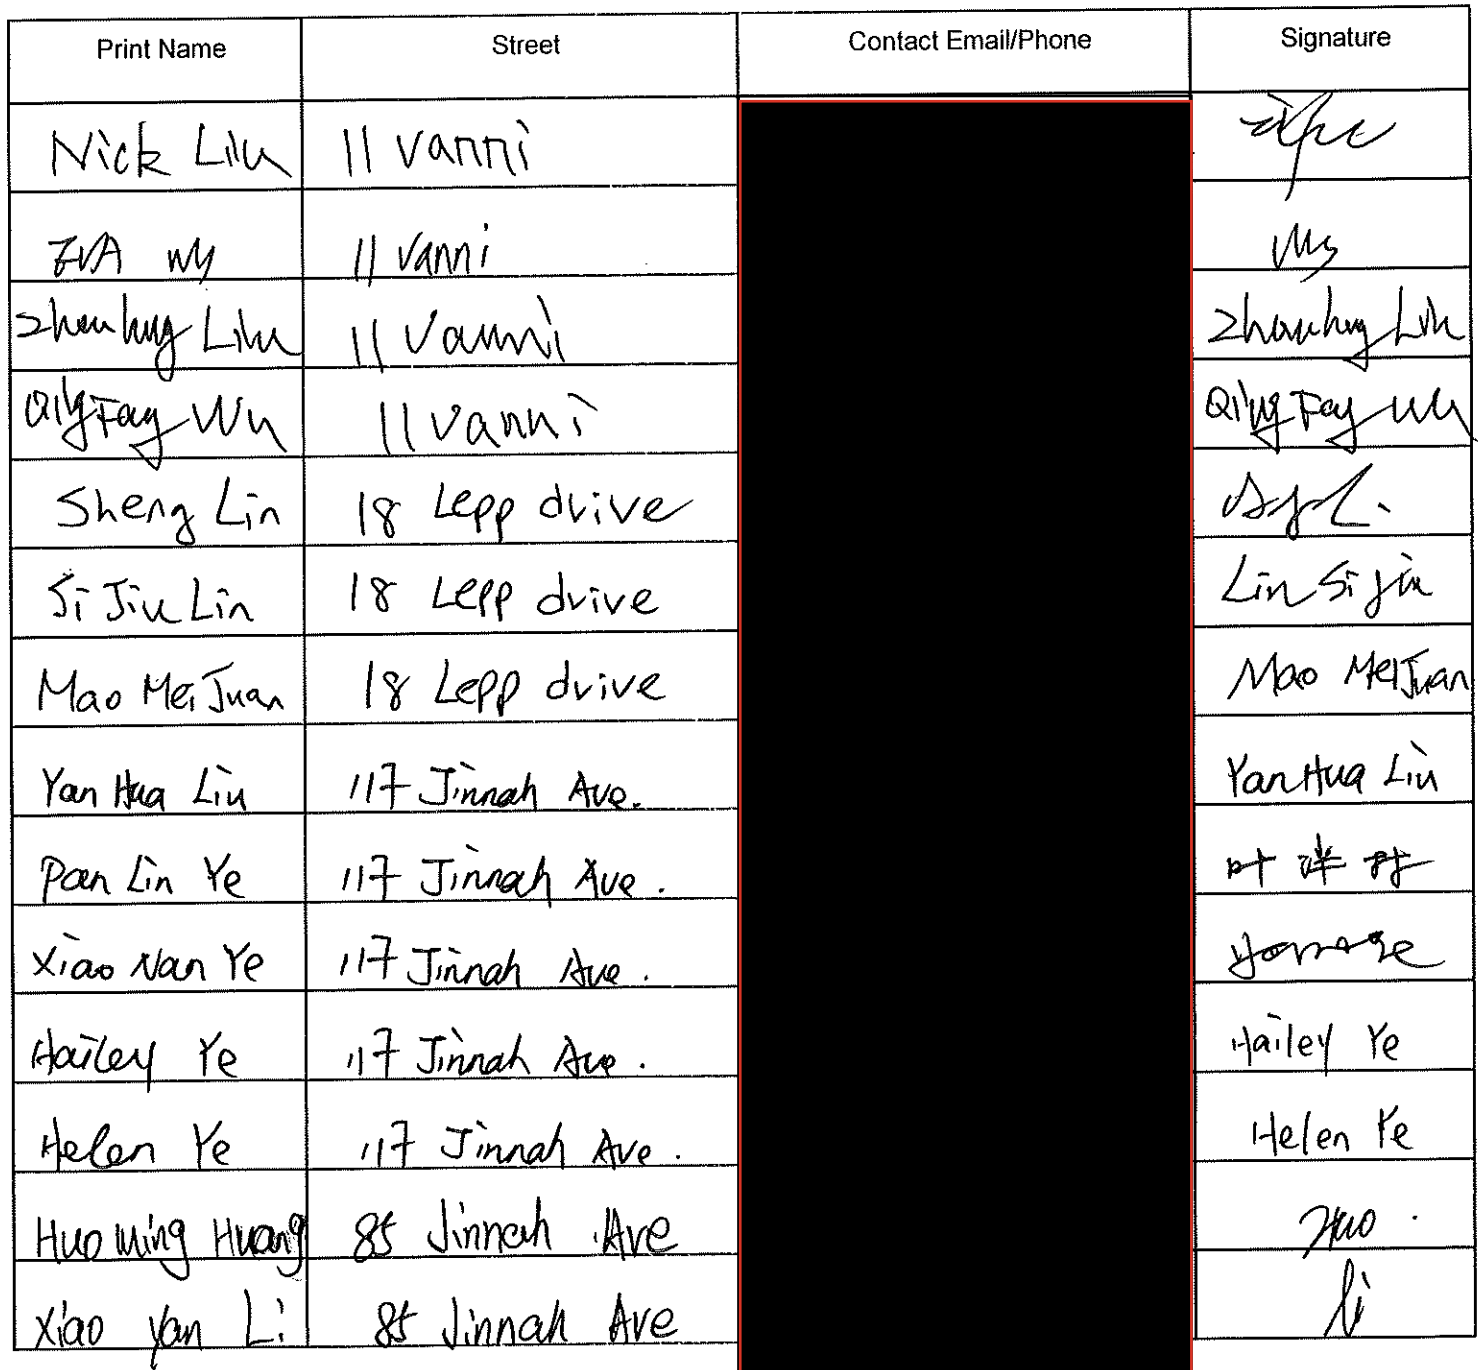 Print Name Street Contact Email/Phone Signature
Nick 11 Vanni
EVA 11 Vanni
11 Vanni
Wu 11 Vanni
Sheng Lin 18 Lepp drive
Si Jiu Lin 18 Lepp drive Lin Si Jiu
Mao Mei Juan 18 Lepp drive Mao Mei Juan
Yan Hua Liu 117 Jinnah Ave. Yan Hua Liu
Pan Lin Ye 117 Jinnah Ave. 叶
Xiao Nan Ye 117 Jinnah Ave.
Hailey Ye 117 Jinnah Ave. Hailey Ye
Helen Ye 117 Jinnah Ave. Helen Ye
Huo Ming Huang 85 Jinnah Ave Huo
Xiao Yan Li 85 Jinnah Ave li